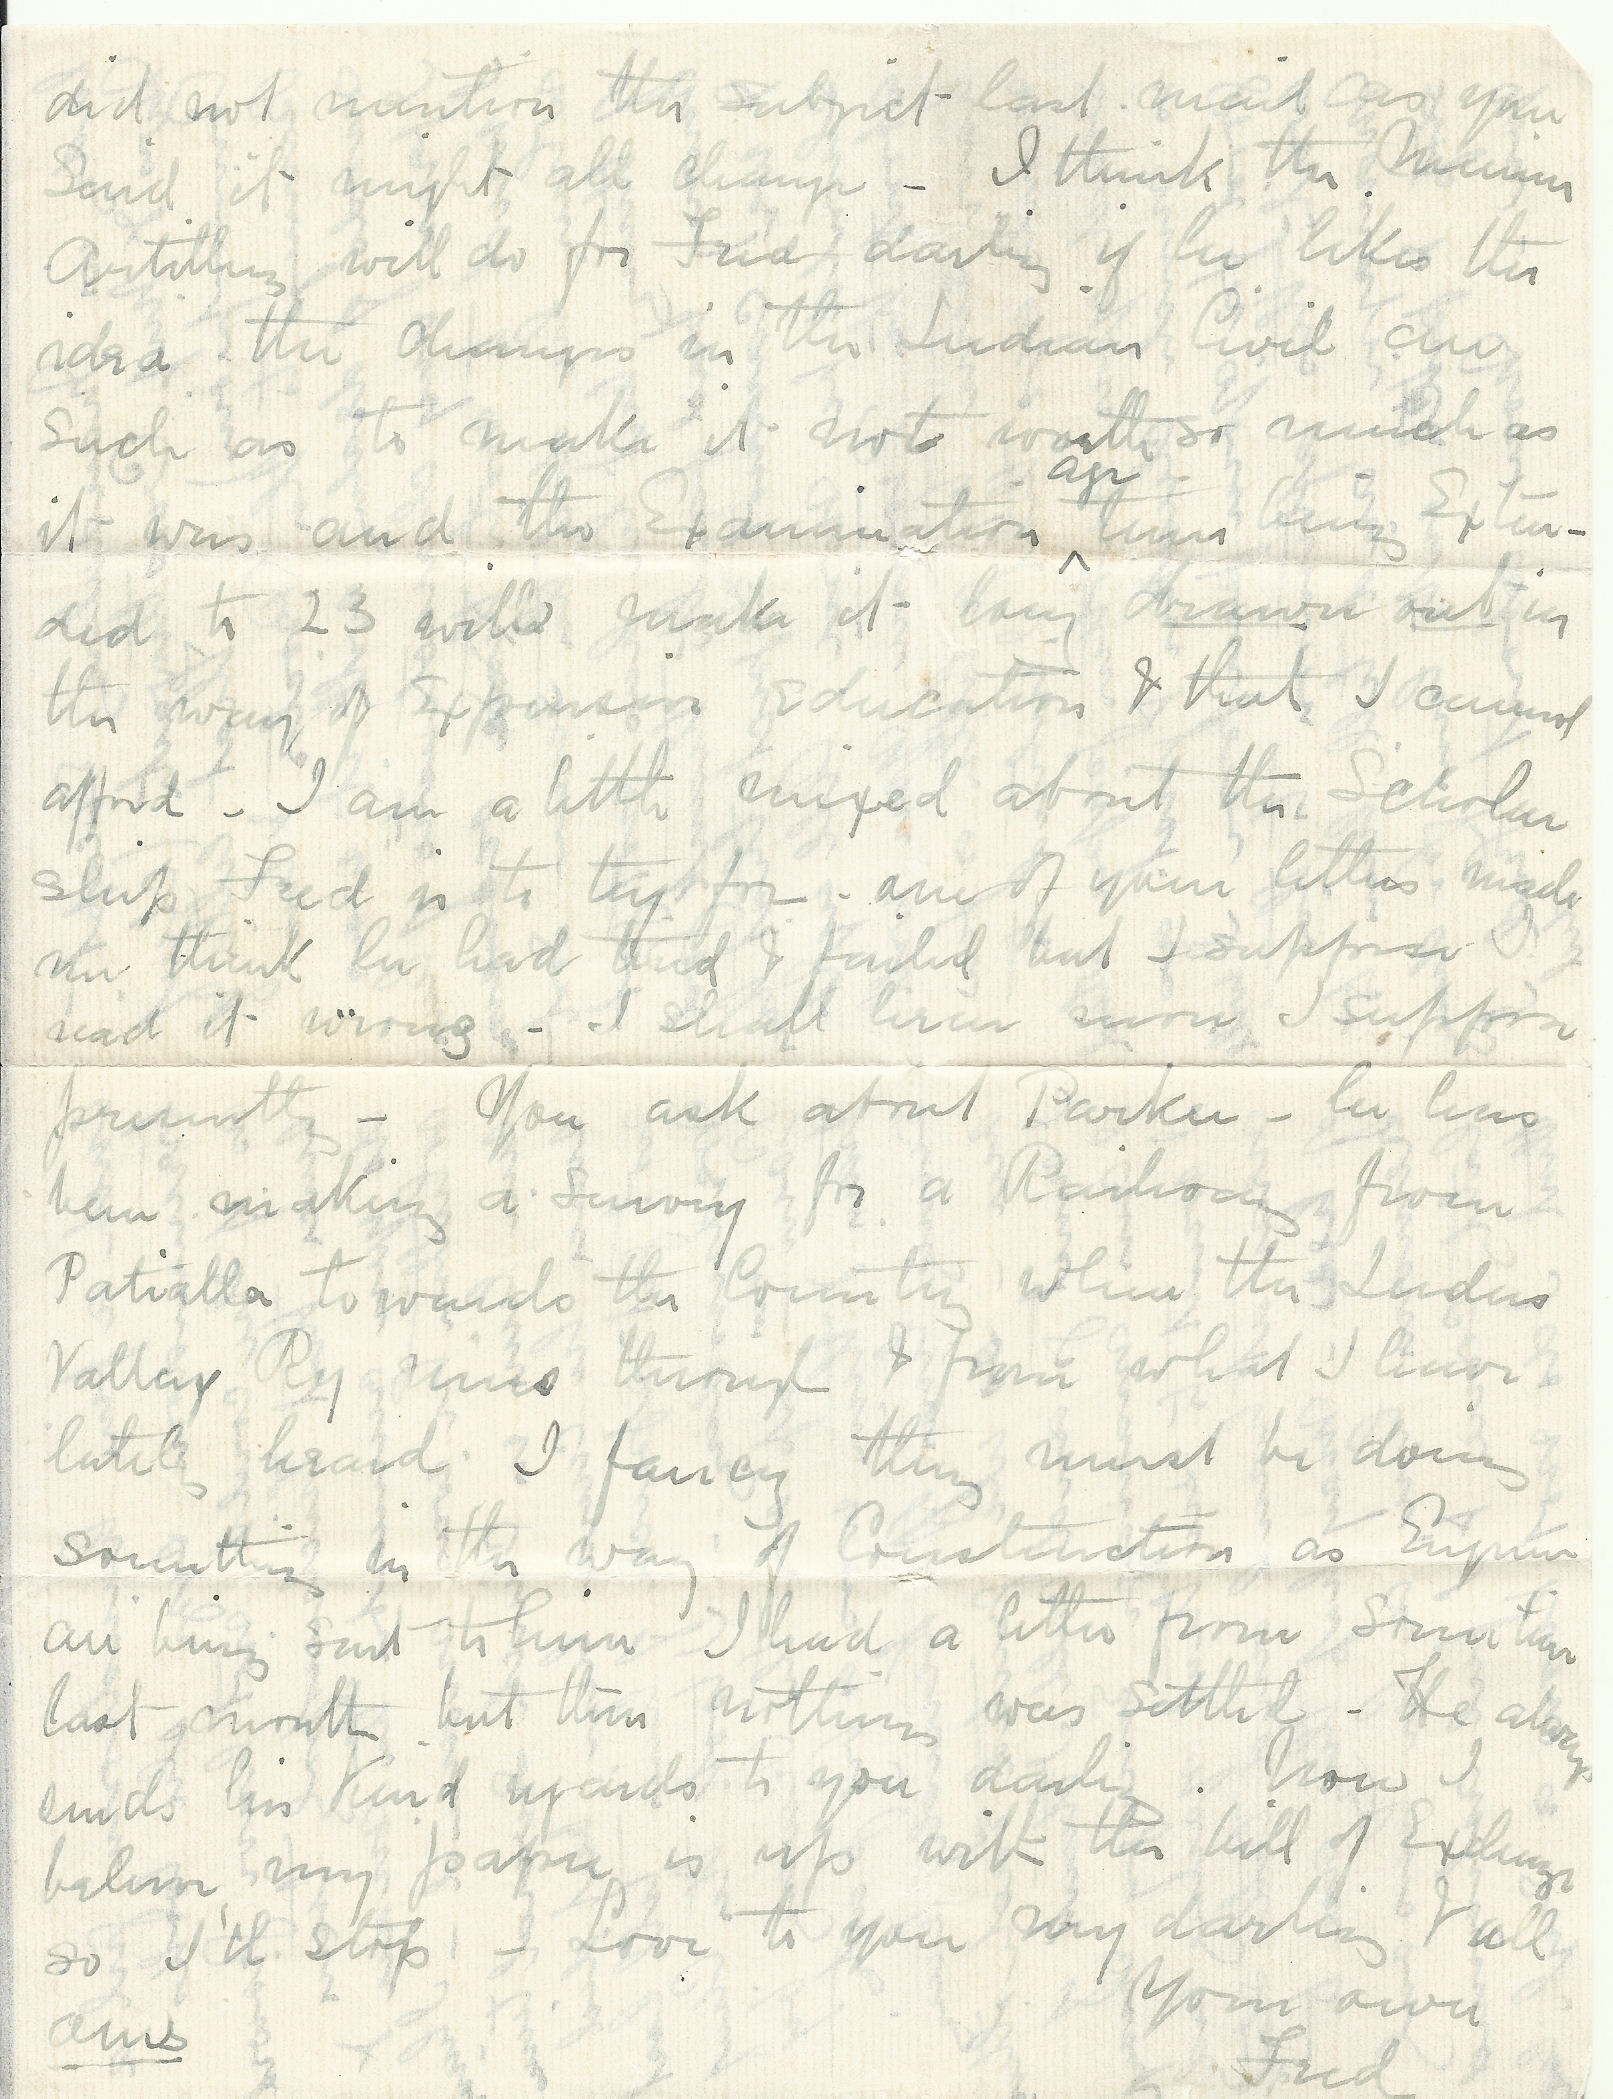 did not mention the subject last mail as you
said it might all change - I think the Marine
Artillery will do for Fred darling if he likes the
idea the changes in the Indian Civil are
such as to make it not worth so much as
it was and the Examination age time being Exten-
ded to 23 will make it long drawn out in
the way of Expensive Education & that I cannot
afford - I am a little mixed about the Scholar
ship Fred is to try for - one of your letters made
me think he had tried & failed but I suppose I
read it wrong - I shall hear more I suppose
presently - You ask about Parker - he has
been making a survey for a Railway from
Patialla towards the Country where the Indus
Valley Ry runs through & from what I have
lately heard I fancy they must be doing
something in the way of Construction as Engineers
are being sent to him I had a letter from some time
last month but then nothing was settled - He always
sends his kind regards to you darling . Now I
believe my paper is up with the bill of Exchange
so I'll stop - Love to you my darling & all
ours
Your own
Fred